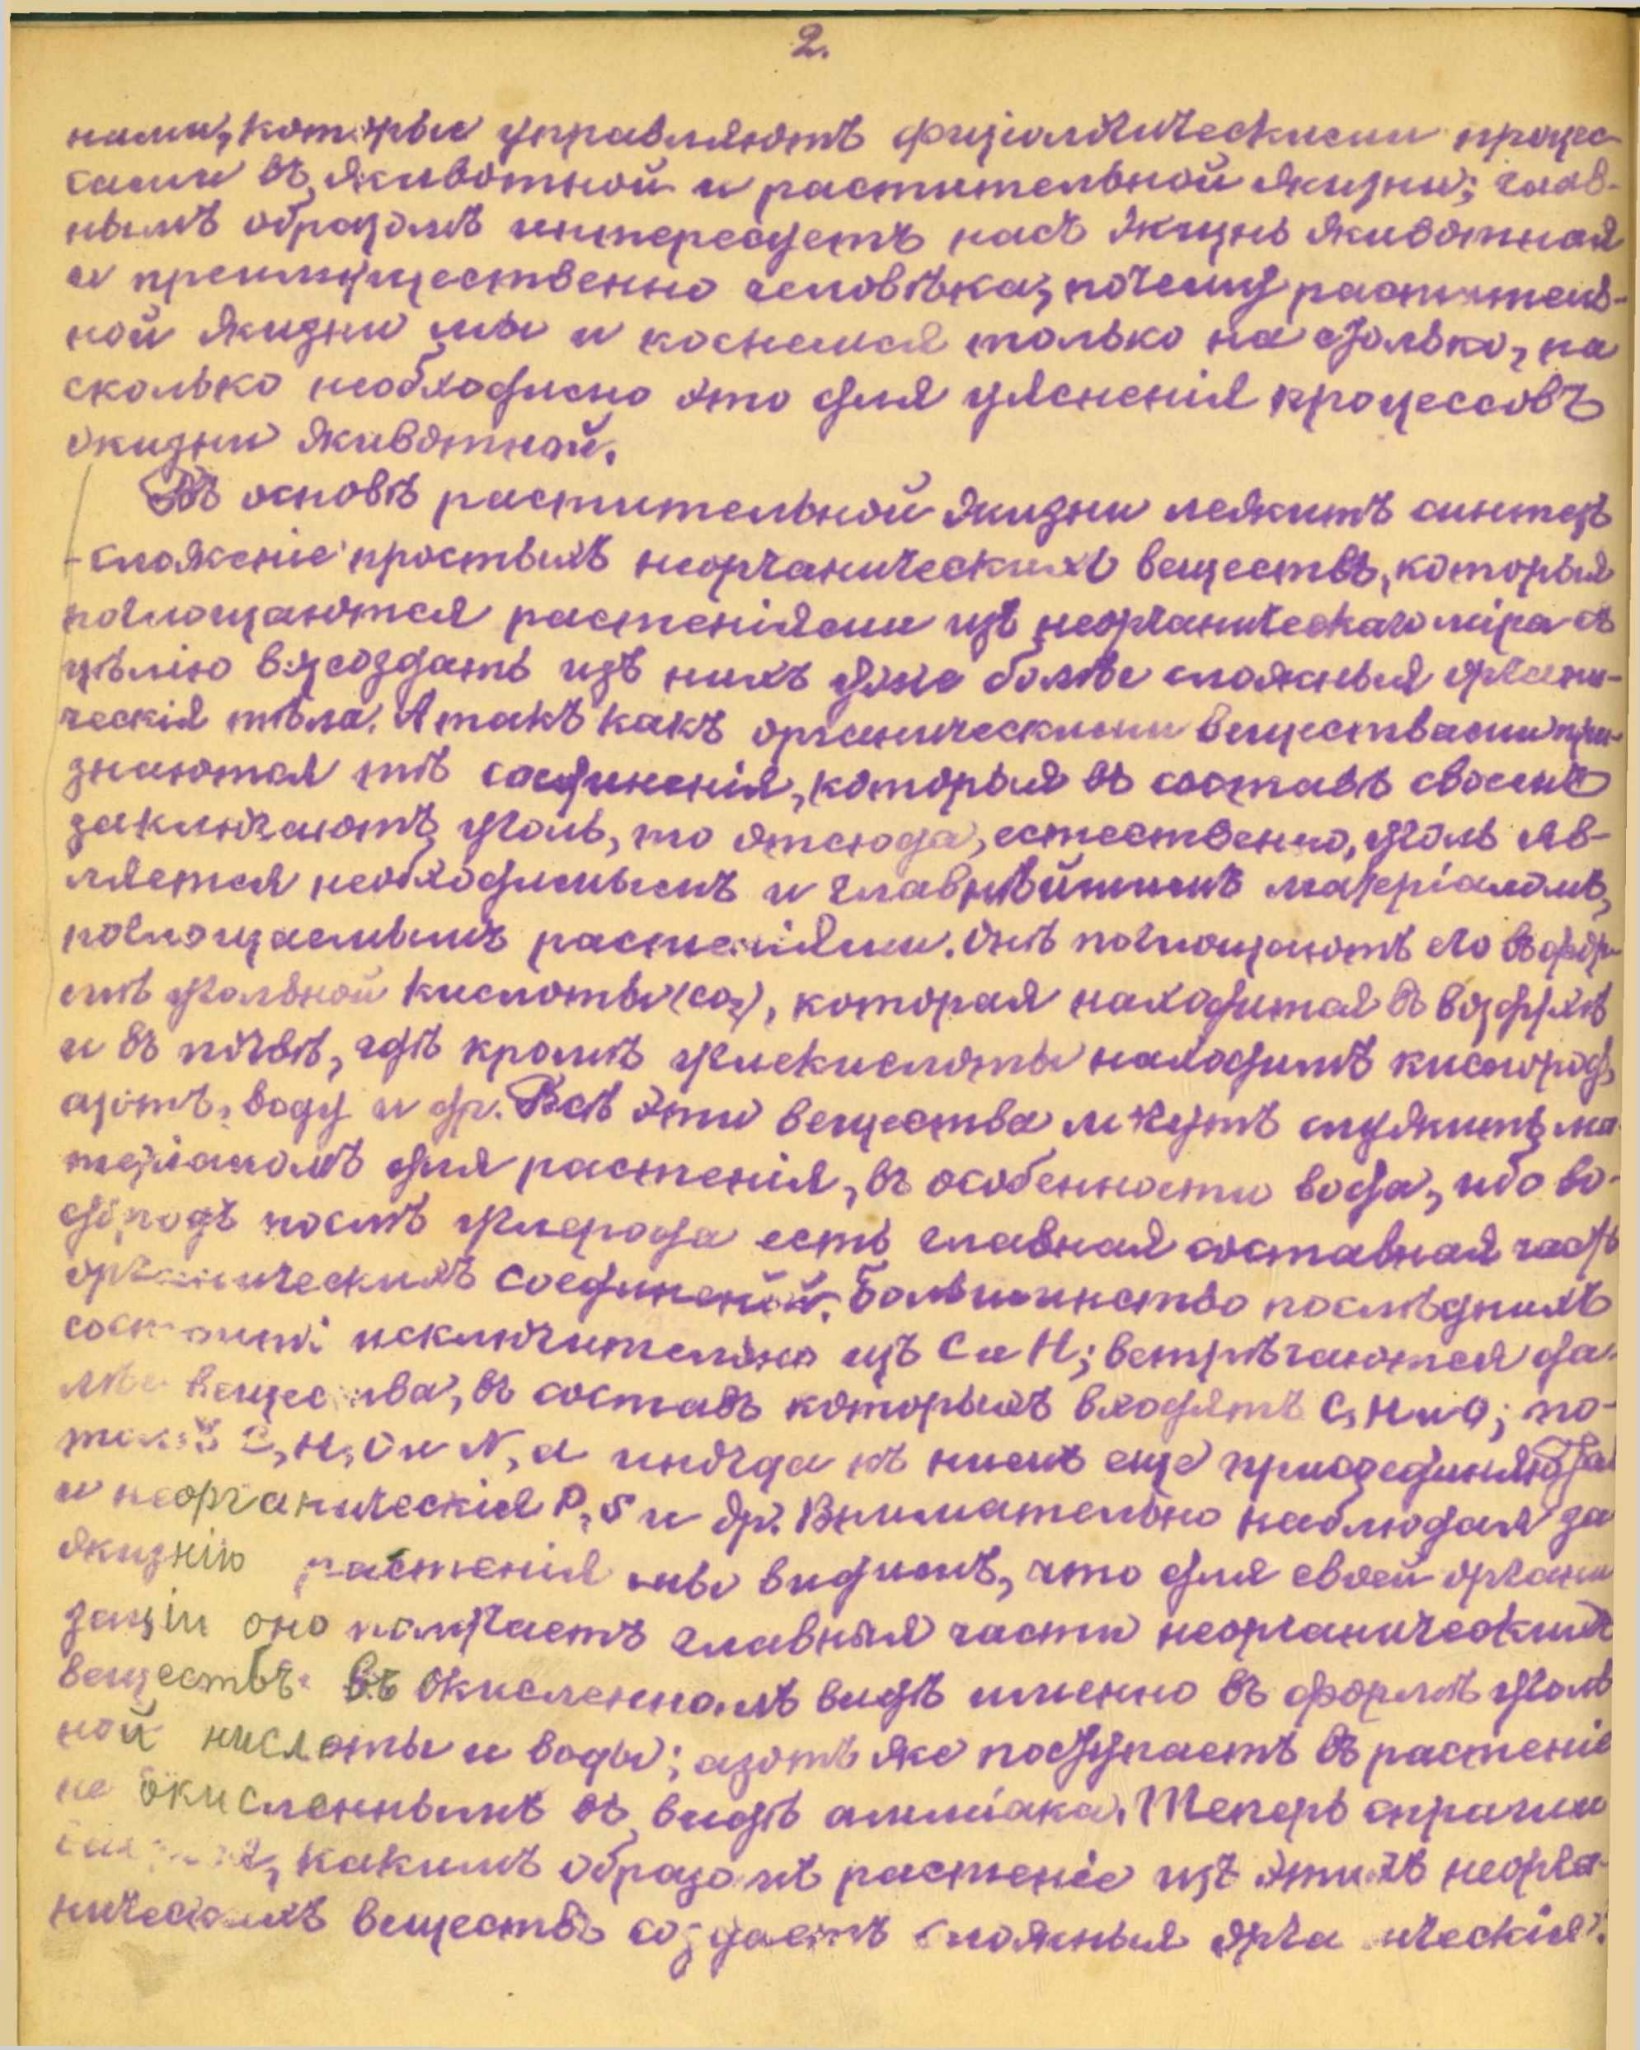 2.
ними, которые управляютъ физіологическими процес-
сами въ животной и растительной жизни; глав-
нымъ образомъ интересуетъ насъ жизнь животная
и преимущественно человѣка, почему раститель-
ной жизни мы и коснемся только на столько, на
сколько необходимо это для уясненія процессовъ
жизни животной.
Въ основѣ растительной жизни лежитъ синтезъ
-сложеніе простыхъ неорганическихъ веществъ, которыя
поглощаются растеніями изъ неорганическаго міра съ
цѣлію возсоздать изъ нихъ уже болѣе сложныя органи-
ческія тѣла. А такъ какъ органическими веществами при-
знаются тѣ соединенія, которыя въ составѣ своемъ
заключаютъ уголь, то отсюда, естественно, уголь яв-
ляется необходимымъ и главнѣйшимъ матеріаломъ,
поглощаемымъ растеніями. Онѣ поглощаютъ его въ фор-
мѣ угольной кислоты (CO2), которая находится въ воздухѣ
и въ почвѣ, гдѣ кромѣ углекислоты находимъ кислородъ,
азотъ, воду и др. Всѣ эти вещества могутъ служить ма
теріаломъ для растенія, въ особенности вода, ибо во-
дородъ послѣ углерода есть главная составная часть
органическихъ соединеній. Большинство послѣднихъ
состоитъ исключительно изъ C и H; встрѣчаются да-
лѣе вещества, въ составъ которыхъ входятъ C, H и O; по-
томъ C, H, O и N, а иногда къ нимъ еще присоединяются
и неорганическія P, S и др. Внимательно наблюдая за
жизнію растенія мы видимъ, что для своей органи
заціи оно получаетъ главныя части неорганическихъ
веществъ въ окисленномъ видѣ именно въ формѣ уголь
ной кислоты и воды; азотъ же поступаетъ въ растеніе
не окисленнымъ въ видѣ амміака. Теперь спраши
вается, какимъ образомъ растеніе изъ этихъ неорга-
ническихъ веществъ создаетъ сложныя органическія?